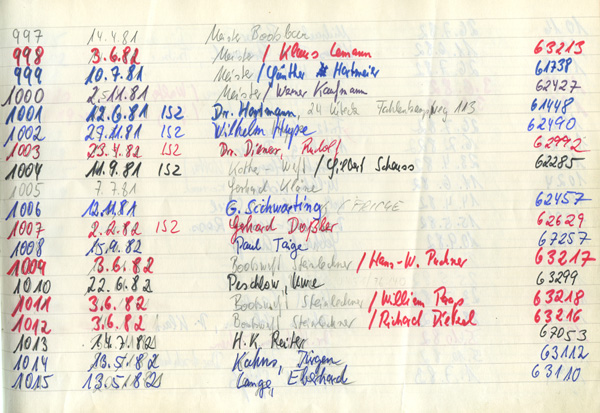 997 14.4.81 Meister
998 3.6.82 Meister / Klaus Lemann 63213
999 10.7.81 Meister / Günther Hartmeier 61738
1000 2.11.81 Meister / Werner Kaufmann 62427
1001 12.6.81 ISZ Dr. Hartmann, 24 113 61448
1002 27.11.81 ISZ Wilhelm 62490
1003 23.4.82 ISZ Dr. Diener, Rudolf 62992
1004 11.9.81 ISZ / Gisbert Schauss 62285
1005 7.7.81 Gerhard
1006 12.11.81 G. Schwarting / FRINGE 62457
1007 2.2.82 ISZ Gerhard Doßler 62629
1008 15.9.82 Paul Täge 67257
1009 3.6.82 Bootswft Steinlechner / Hans-W. 63217
1010 22.6.82 Peschlow, Uwe 63299
1011 3.6.82 Bootswft Steinlechner / William 63218
1012 3.6.82 Bootswft Steinlechner / Richard Dietzel 63216
1013 14.7.82 H.K. Reiter 67053
1014 13.5.82 Kahns, Jürgen 63112
1015 13.05.82 Lange, Eberhard 63110